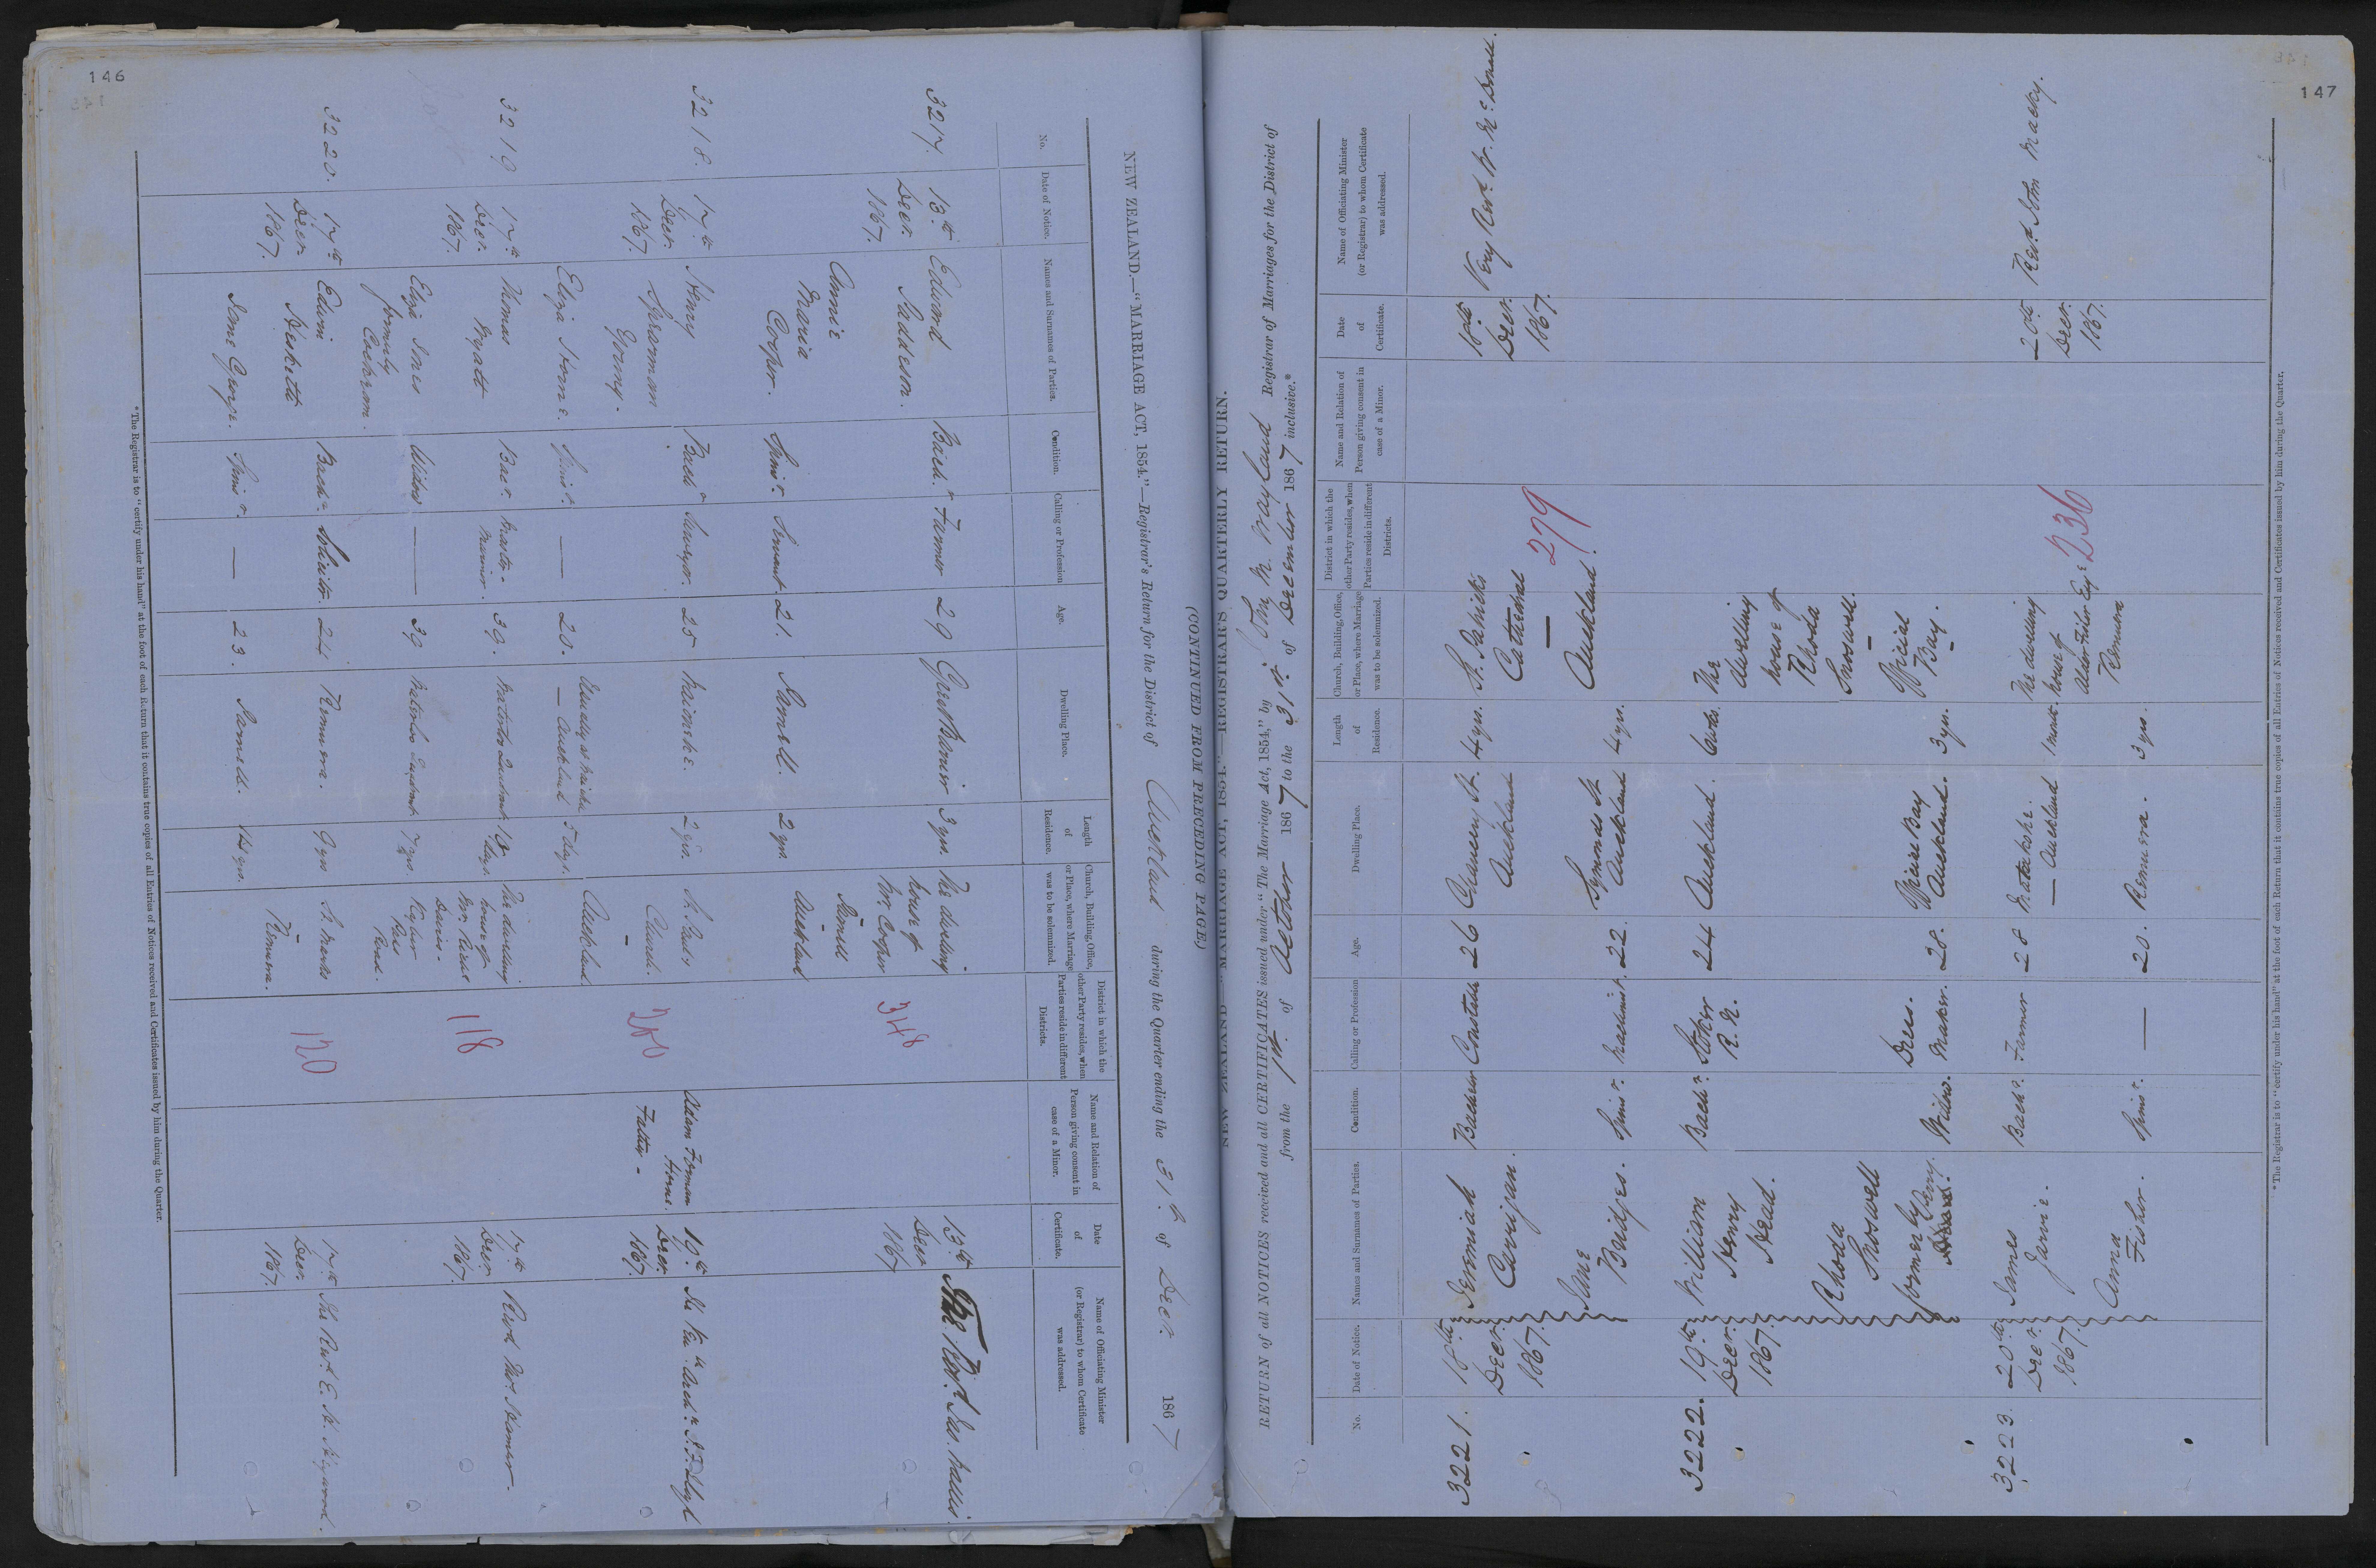 146
(CONTINUED FROM PRECEDING PAGE.)
NEW ZEALAND.—"MARRIAGE ACT, 1854."—Registrar's Return for the District of Auckland during the Quarter ending the 31st of Decr. 1867
No.
Date of Notice.
Names and Surnames of Parties.
Condition.
Calling or Profession
Age.
Dwelling Place.
Length
of
Residence.
Church, Building, Office,
or Place, where Marriage
was to be solemnized.
District in which the
other Party resides, when
Parties reside in different
Districts.
Name and Relation of
Person giving consent in
case of a Minor.
Date
of
Certificate.
Name of Officiating Minister
(or Registrar) to whom Certificate
was addressed.
3217.
13th
Decr.
1867.
Edward
Saddeson.
Annie
Maria
Cooper.
Bachr.
Spinr.
Farmer
Servant.
29
21.
Parnell.
3 yrs.
2 yrs.
The dwelling
house of
Mr. Cooper
Parnell
—
Auckland
348
13th
Decr
1867
The Revd.
3218.
17th
Decr.
1867.
Henry
Spearman
Young.
Eliza Horne.
Bachr
Spinr.
Surveyor.
—
25
20.
— Auckland
2 yrs.
5 days.
St. Paul's
Church.
—
Auckland
260
Adam Forman
Horne.
Father -
19th
Decr.
1867.
3219
17th
Decr.
1867.
Thomas
Myatt
Eliza Jones
formerly
Cochran.
Bachr.
Widow
Master
Mariner.
—
39.
39
18 days.
7 yrs.
The dwelling
house of
Davies -
Kyber
Pass
Road.
118
17th
Decr
1867.
3220.
17th
Decr
1867.
Edwin
Hesketh
Jane George.
Bachr.
Spinr.
Solicitor
—
24
23.
Remuera.
Parnell.
9 yrs
14 yrs.
St. Marks
—
Remuera.
120
17th
Decr
1867.
The Revd. E. H. Heywood.
*The Registrar is to "certify under his hand" at the foot of each Return that it contains true copies of all Entries of Notices received and Certificates issued by him during the Quarter.
147
NEW ZEALAND.—"MARRIAGE ACT, 1854."—REGISTRAR'S QUARTERLY RETURN.
RETURN of all NOTICES received and all CERTIFICATES issued under "The Marriage Act, 1854," by John M. Wayland Registrar of Marriages for the District of
from the 1st. of October 1867 to the 31st. of December 1867 inclusive.*
No.
Date of Notice.
Names and Surnames of Parties.
Condition.
Calling or Profession
Age.
Dwelling Place.
Length
of
Residence.
Church, Building, Office,
or Place, where Marriage
was to be solemnized.
District in which the
other Party resides, when
Parties reside in different
Districts.
Name and Relation of
Person giving consent in
case of a Minor.
Date
of
Certificate.
Name of Officiating Minister
(or Registrar) to whom Certificate
was addressed.
3221.
18th
Decr.
1867.
Jeremiah
Carrigan.
Jane
Bridges.
Bachelor
Spinr.
Constable
Machinist.
26
22.
Chancery St.
Auckland
Symonds St
Auckland
4 yrs.
4 yrs.
St. Patrick's
Cathedral
—
Auckland.
279
18th
Decr.
1867.
Very Revd. W. McDonald.
3222.
19th
Decr.
1867.
William
Henry
Head.
Rhoda
Snoswell
formerly
Bachr.
Widow.
Stoker
R. N.
Dress
Maker.
24
28.
Auckland.
Official Bay
Auckland.
3 yrs.
The
dwelling
house of
Rhoda
Snoswell.
—
Official
Bay.
3223.
20th
Decr.
1867.
James
Jarvie.
Anna
Fisher.
Bachr.
Spinr.
Farmer
—
28
20.
Matakohe.
— Auckland
Remuera.
1 month.
3 yrs.
The dwelling
house of
Remuera
236
20th
Decr.
1867.
Revd. John Macky.
*The Registrar is to "certify under his hand" at the foot of each Return that it contains true copies of all Entries of Notices received and Certificates issued by him during the Quarter.